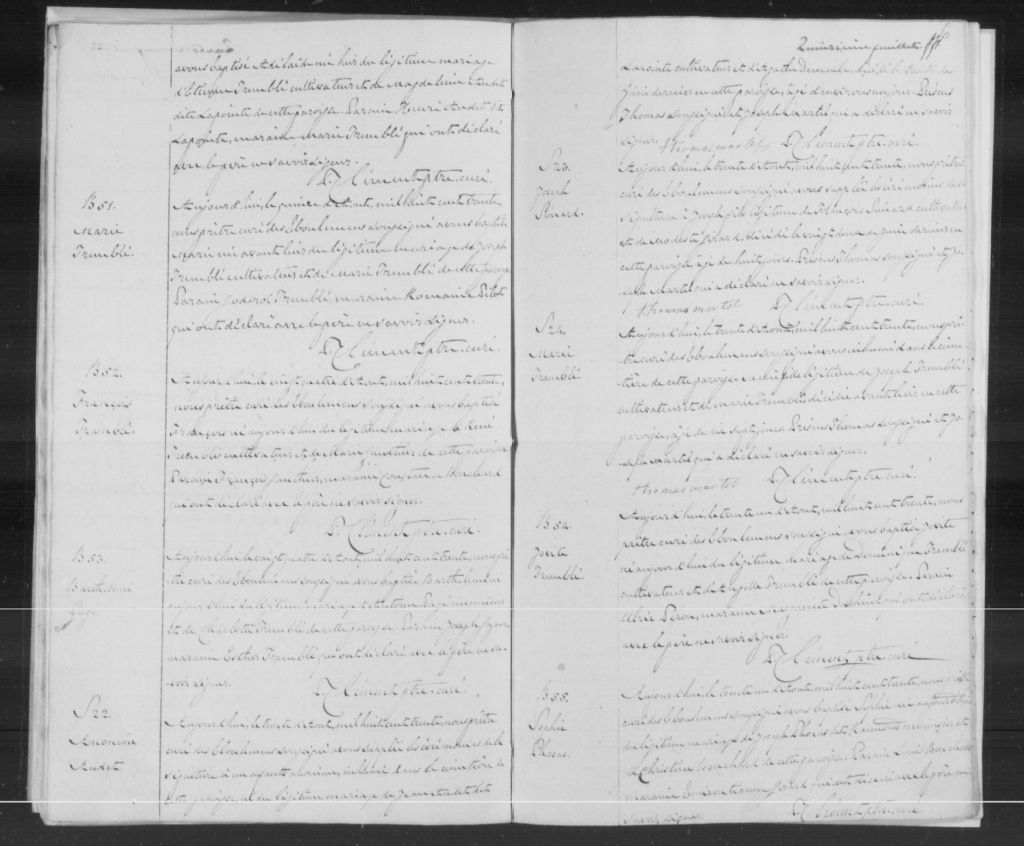 avons baptisé Adelaïde née hier du légitime mariage
d'Etienne Tremblé cultivateur et de Magdeleine Audet
dit Lapointe de cette paroisse. Parain Henri Audet dit
Lapointe, maraine Marie Tremblé qui ont déclaré
avec le père ne savoir signer.
Clément ptre. curé.
B 51.
Marie
Tremblé.
Aujourd'hui, le quinze d'Aout, mil huit cent trente,
nous prêtre curé des Eboulemens soussigné avons baptisé
Marie née avant hier du légitime mariage de Joseph
Tremblé cultivateur et de Marie Tremblé de cette paroisse
Parain Godfroi Tremblé, maraine Romaine Pilote
qui ont déclaré avec le père ne savoir signer.
Clément ptre. curé.
B 52.
François
Tremblé.
Aujourd'hui, le vingt quatre d'Aout, mil huit cent trente,
nous prêtre curé des Eboulemens soussigné avons baptisé
François né aujourd'hui du légitime mariage de René
Tremblé cultivateur et de de cette paroisse
Parain François maraine Bouchard
qui ont déclaré avec le père ne savoir signer.
Clément ptre. curé.
B 53.
Barthelemi
Aujourd'hui le vingt quatre d'Aout, mil huit cent trente, nous prê-
tre curé des Eboulemens soussigné avons baptisé Barthelemi né
aujourd'hui du légitime mariage d'
et de Charlotte Tremblé de cette paroisse Parain Joseph
maraine Esther Tremblé qui ont déclaré avec le père ne sa-
voir signer.
Clément ptre. curé.
S 22.
Anonime
Audet
Aujourd'hui, le trente d'Aout, mil huit cent trente, nous prêtre
curé des Eboulemens soussigné avons suppléé les cérémonies de la
sépulture à un enfant anonime, inhumé dans le cimetière de
cette paroisse, né du légitime mariage de Jean Audet dit
Quinzième feuillet
Lapointe cultivateur et d'Agathe décédé le trente de
dernier en cette paroisse, âgé d'environ un jour. Présens
Thomas soussigné et Joseph Martel qui a déclaré ne savoir
signer.
thomas martel Clément ptre. curé.
S 23.
Joseph
Aujourd'hui, le trente d'Aout, mil huit cent trente, nous prêtre
curé des Eboulemens soussigné avons suppléé les cérémonies de la
sépulture à Joseph fils légitime de François cultivateur
et de Modeste Girard, décédé le vingt deux de Juin dernier en
cette paroisse, âgé de huit jours. Présens Thomas soussigné et Jo-
seph Martel qui a déclaré ne savoir signer.
thomas martel Clément ptre. curé.
S 24.
Marie
Tremblé.
Aujourd'hui, le trente d'Aout, mil huit cent trente, nous prê-
tre curé des Eboulemens soussigné avons inhumé dans le cime-
tière de cette paroisse Marie fille légitime de Joseph Tremblé
cultivateur et de Marie Tremblé, décédée avant hier en cette
paroisse, âgée de dix sept jours. Présens Thomas soussigné et Jo-
seph Martel qui a déclaré ne savoir signer.
thomas martel Clément ptre. curé.
B 54.
Tremblé.
Aujourd'hui, le trente un d'Aout, mil huit cent trente, nous
prêtre curé des Eboulemens soussigné avons baptisé
né aujourd'hui du légitime mariage de Dominique Tremblé
cultivateur et d'Angelle Tremblé de cette paroisse. Parain
maraine Marguerite qui ont déclaré
avec le père ne savoir signer.
Clément ptre. curé
B 55.
Sophie
Aujourd'hui, le trente un d'Aout, mil huit cent trente, nous prêtre
curé des Eboulemens soussigné avons baptisé Sophie née aujourd'hui
du légitime mariage de Joseph et
de Christine Bouchard de cette paroisse. Parain Louis Bouchard
maraine qui ont déclaré avec le père ne
savoir signer.
Clément ptre. curé.